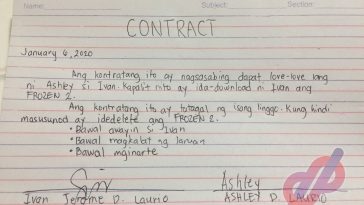 Name: Subject: Date:
CONTRACT
January 6, 2020
Ang kontratang ito ay nagsasabing dapat love-love lang
ni Ashley si Ivan. Kapalit nito ay ida-download ni Ivan ang
FROZEN 2.
Ang kontratang ito ay tatagal ng isang linggo. Kung hindi
masusunod ay idedelete ang FROZEN 2.
• Bawal awayin si Ivan
• Bawal magkalat ng laruan
• Bawal mginarte
Ashley
Ivan Jerome D. Laurio ASHLEY D. LAURIO